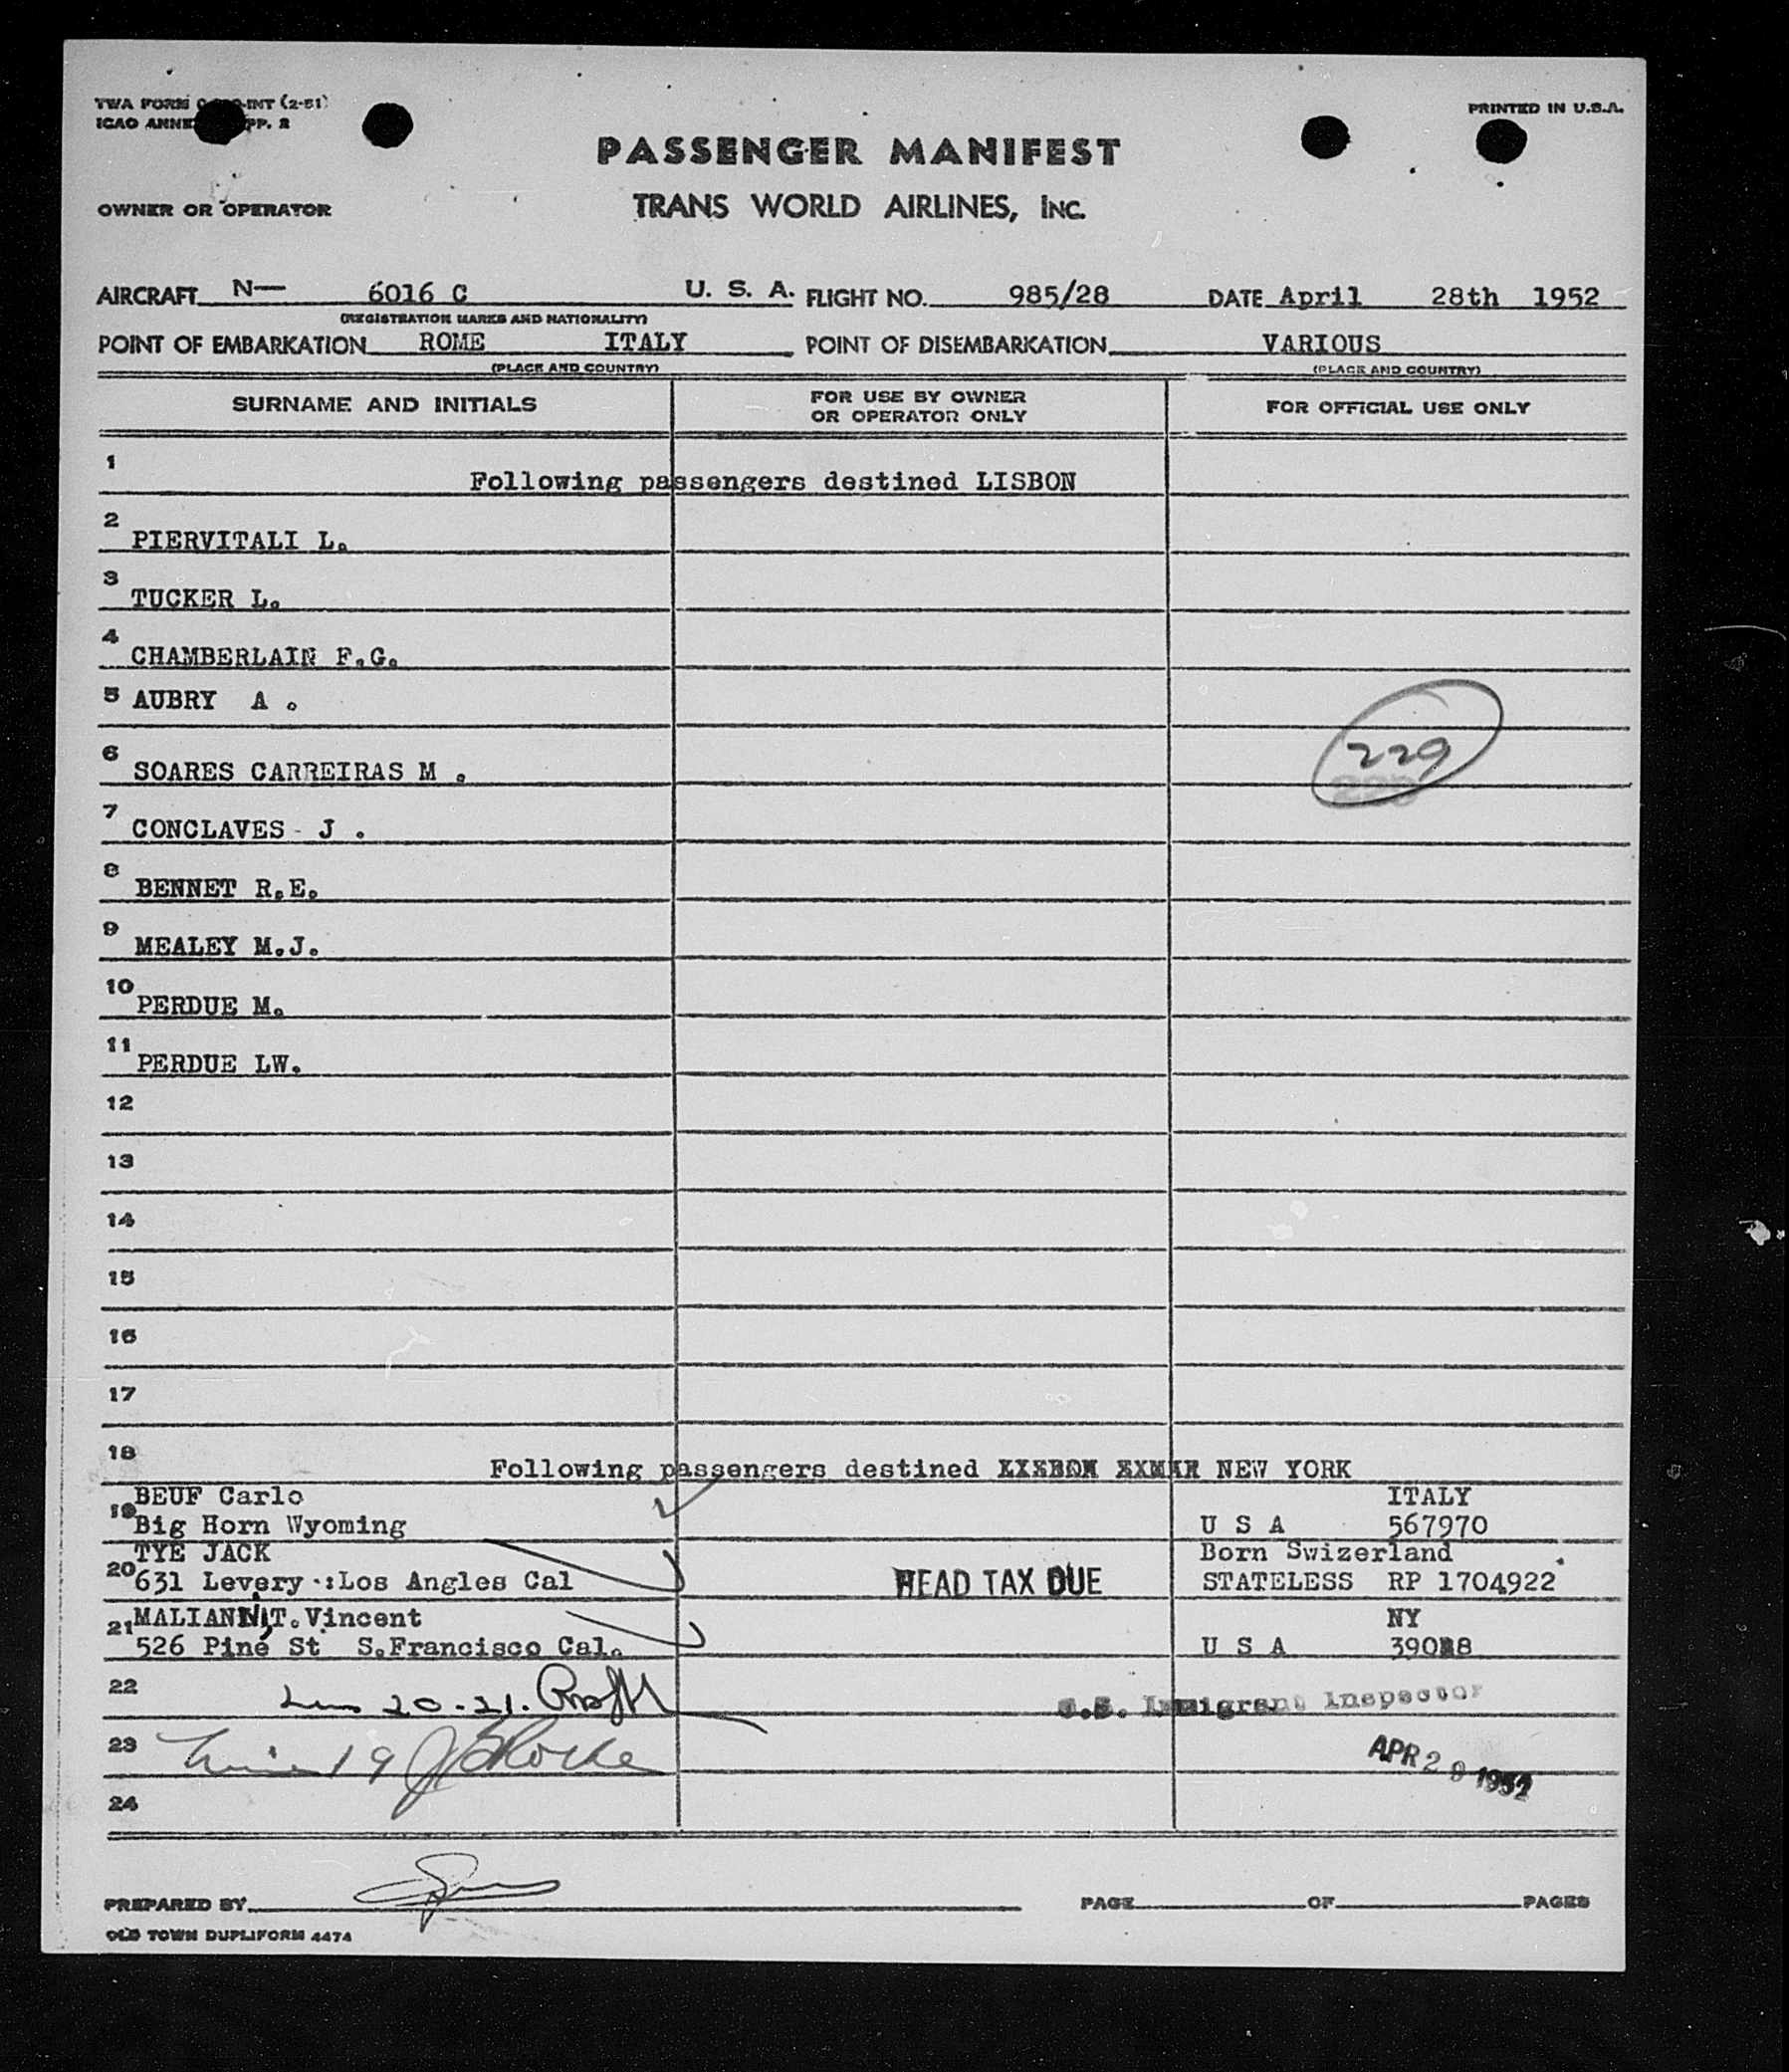 TWA FORM -INT (2-51)
ICAO ANNE PP. 2
PRINTED IN U.S.A.
PASSENGER MANIFEST
OWNER OR OPERATOR
TRANS WORLD AIRLINES, INC.
AIRCRAFT N— 6016 C U. S. A. FLIGHT NO. 985/28 DATE April 28th 1952
(REGISTRATION MARKS AND NATIONALITY)
POINT OF EMBARKATION ROME ITALY POINT OF DISEMBARKATION VARIOUS
(PLACE AND COUNTRY) (PLACE AND COUNTRY)
SURNAME AND INITIALS
FOR USE BY OWNER
OR OPERATOR ONLY
FOR OFFICIAL USE ONLY
1
Following passengers destined LISBON
2
PIERVITALI L.
3
TUCKER L.
4
CHAMBERLAIN F.G.
5 AUBRY A .
6
SOARES CARREIRAS M .
229
7
CONCLAVES - J .
8
BENNET R.E.
9
MEALEY M.J.
10
PERDUE M.
11
PERDUE LW.
12
13
14
15
16
17
18
Following passengers destined NEW YORK
BEUF Carlo ITALY
19 Big Horn Wyoming U S A 567970
TYE JACK Born Swizerland
20 631 Levery .:Los Angles Cal HEAD TAX DUE STATELESS RP 1704922
21 MALIANNI T. Vincent NY
526 Pine St S.Francisco Cal. U S A
22
20-21.
U.S. Immigrant Inspector
23
19
APR 29 1952
24
PREPARED BY PAGE OF PAGES
OLD TOWN DUPLIFORM 4474